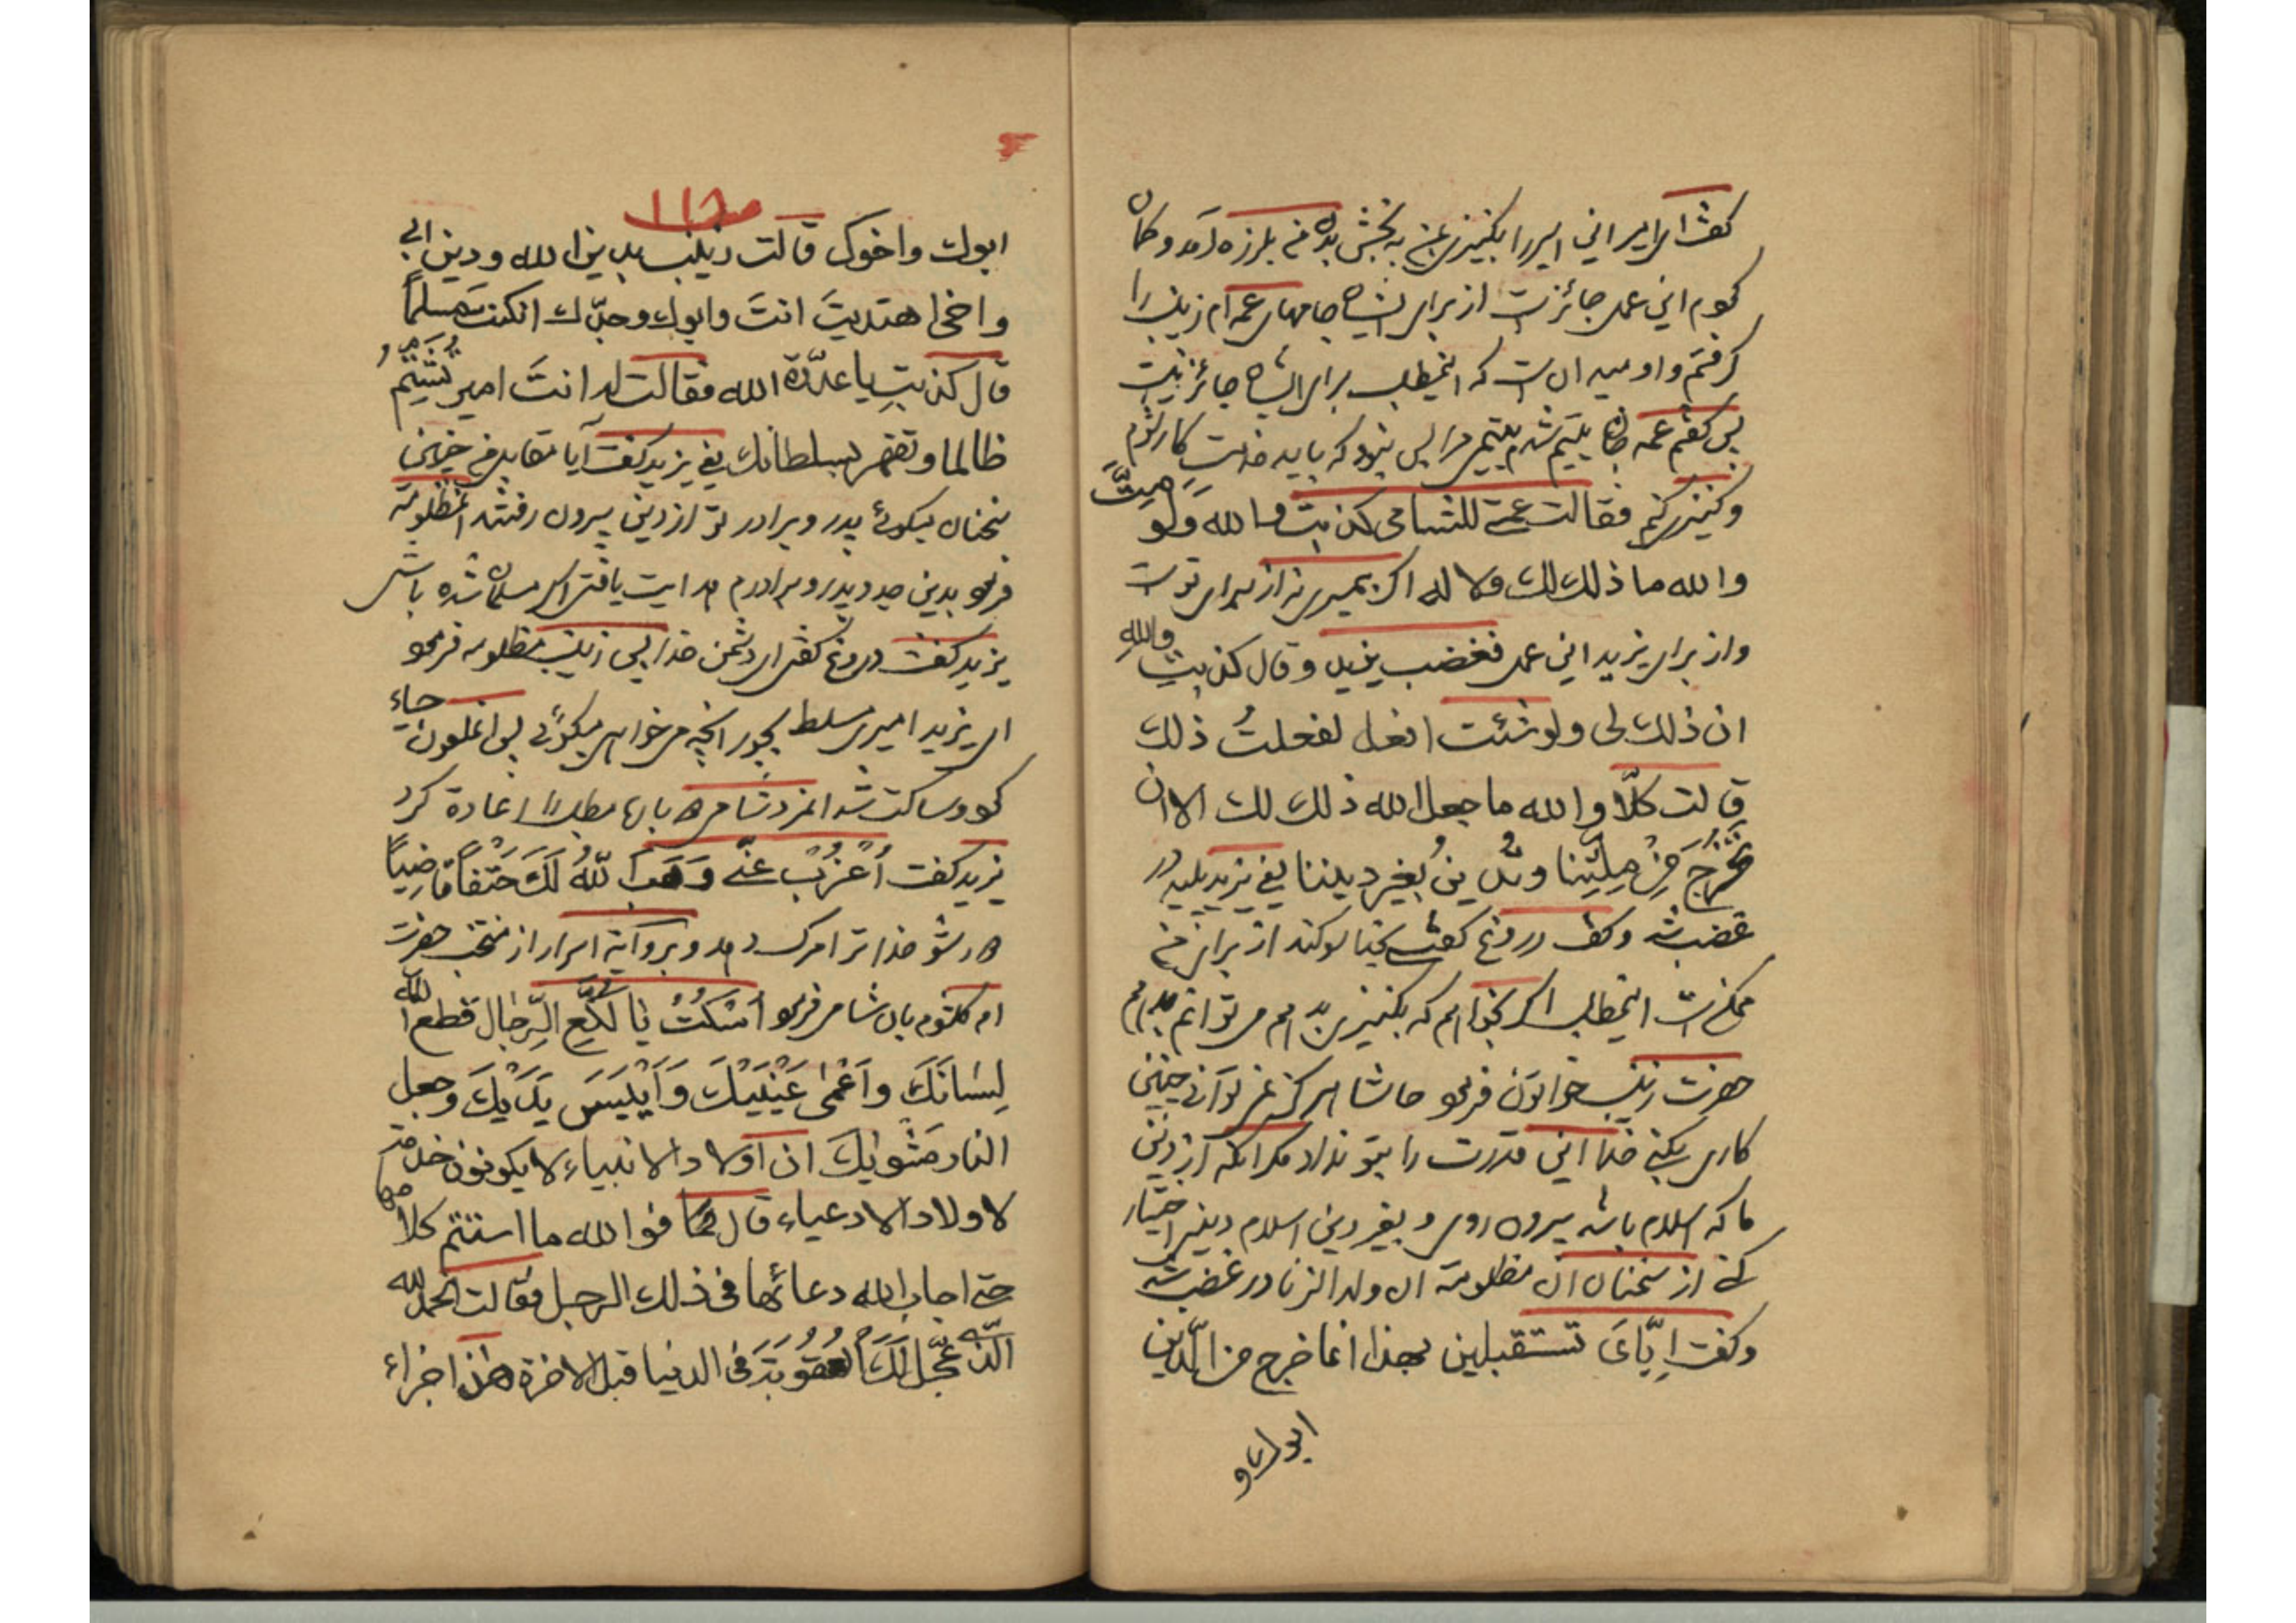 گفت ای امیر این اسیر را بکنیزی بمن به بخش بدن من بلرزه آمد و گمان
کردم این عمل جائز است از برای ایشان جامهای عمه ام زینب را
گرفتم و او میدانست که اینمطلب برای ایشان جائز نیست
پس گفتم عمه جان یتیم شدم یتیمی مرا بس نبود که باید خدمت کار شوم
و کنیزی کنم فقالت عمتی للشامی کذبت والله ولو مِتَّ
والله ما ذلک لک ولا له اگر بمیری نه از برای تو است
و از برای یزید این عمل فغضب یزید و قال کذبتِ واللهِ
ان ذلک لی ولو شئت افعل لفعلتُ ذلک
قالت کلّا والله ما جعل الله ذلک لک الا ان
تَخْرُجَ مِنْ مِلَّتِنا وتدینُ بغیر دیننا یعنی یزید پلید در
غضب شد و گفت دروغ گفتی بخدا سوگند از برای من
ممکن است اینمطلب اگر بخواهم که بکنیزی بدهم می توانم بدهم
حضرت زینب خواتون فرمود حاشا هرگز نمی توانی چنین
کاری بکنی خدا این قدرت را بتو نداده مگر آنکه از دین
ما که اسلام باشد بیرون روی و بغیر دین اسلام دینی اختیار
کنی از سخنان آن مظلومه آن ولد الزنا در غضب شد
و گفت اِیّایَ تستقبلین بهذا انما خرج من الدّین
ابوک و
ص ۱۱۸
ابوک واخوک قالت زینب بدین الله ودین ابی
واخی اهتدیتَ انتَ وابوک وجدّک ان کنتَ مسلماً
قال کذبتِ یا عدوّة الله فقالت له انتَ امیر تَشْتِمُ
ظالما وتقهر بسلطانک یعنی یزید گفت آیا مقابل من چنین
سخنان میگوئی پدر و برادر تو از دین بیرون رفتند آنمظلومه
فرمود بدین جد و پدر و برادرم هدایت یافتی اگر مسلمان شده باشی
یزید گفت دروغ گفتی ای دشمن خدا پس زینب مظلومه فرمود
ای یزید امیری مسلط بجور آنچه می خواهی میگوئی پس آنملعون حیاء
کرد و ساکت شد آنمرد شامی باز مطلب را اعاده کرد
یزید گفت اُعْزُبْ عنّی وَهَبَ اللّهُ لَکَ حَتْفاً قاضِیاً
دور شو خدا ترا مرگ دهد و بروایة اسرار از منتخب حضرت
ام کلثوم بآن شامی فرمود اُسْکُتْ یا لُکَّعِ الرِّجال قطع الله
لِسانَکَ واَعْمیٰ عَیْنَیْکَ وَاَیْبَسَ یَدَیْکَ وجعل
النار مَثْویٰکَ ان اولاد الانبیاء لا یکونون خدمة
لاولاد الادعیاء قال فوالله ما استتم کلامها
حتی اجاب الله دعائها فی ذلک الرجل فقالت الحمد لله
الّذی عجّل لَکَ العقوبة فی الدنیا قبل الاخرة هذا جزاء